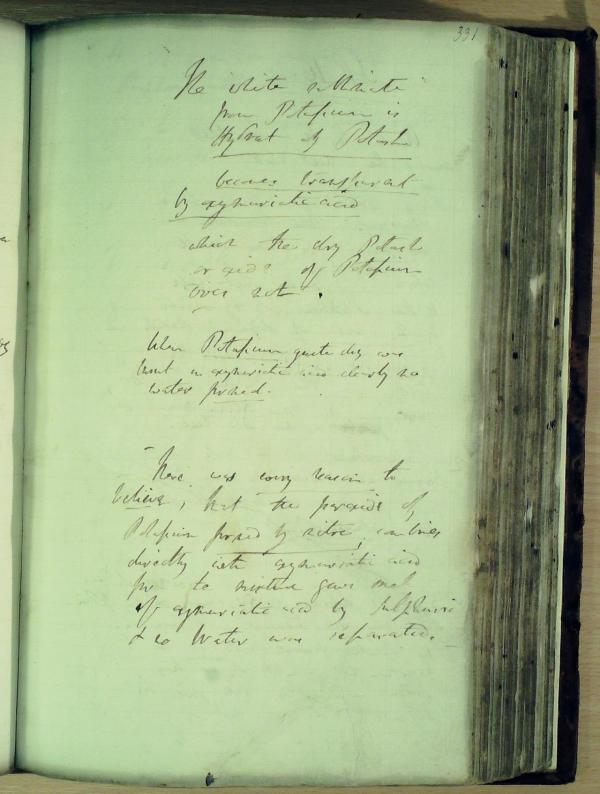 331
The white sublimate
from Potassium is
Hydrat of Potash
becomes transparent
by oxymuriatic acid
which the dry Potash
or oxide of Potassium
does not.
When Potassium quite dry was
burnt in oxymuriatic acid clearly no
water formed.
There was every reason to
believe, that the peroxide of
Potassium formed by nitre, combines
directly with oxymuriatic acid
for the mixture gave
of oxymuriatic acid by Sulphuric
& no Water was separated.